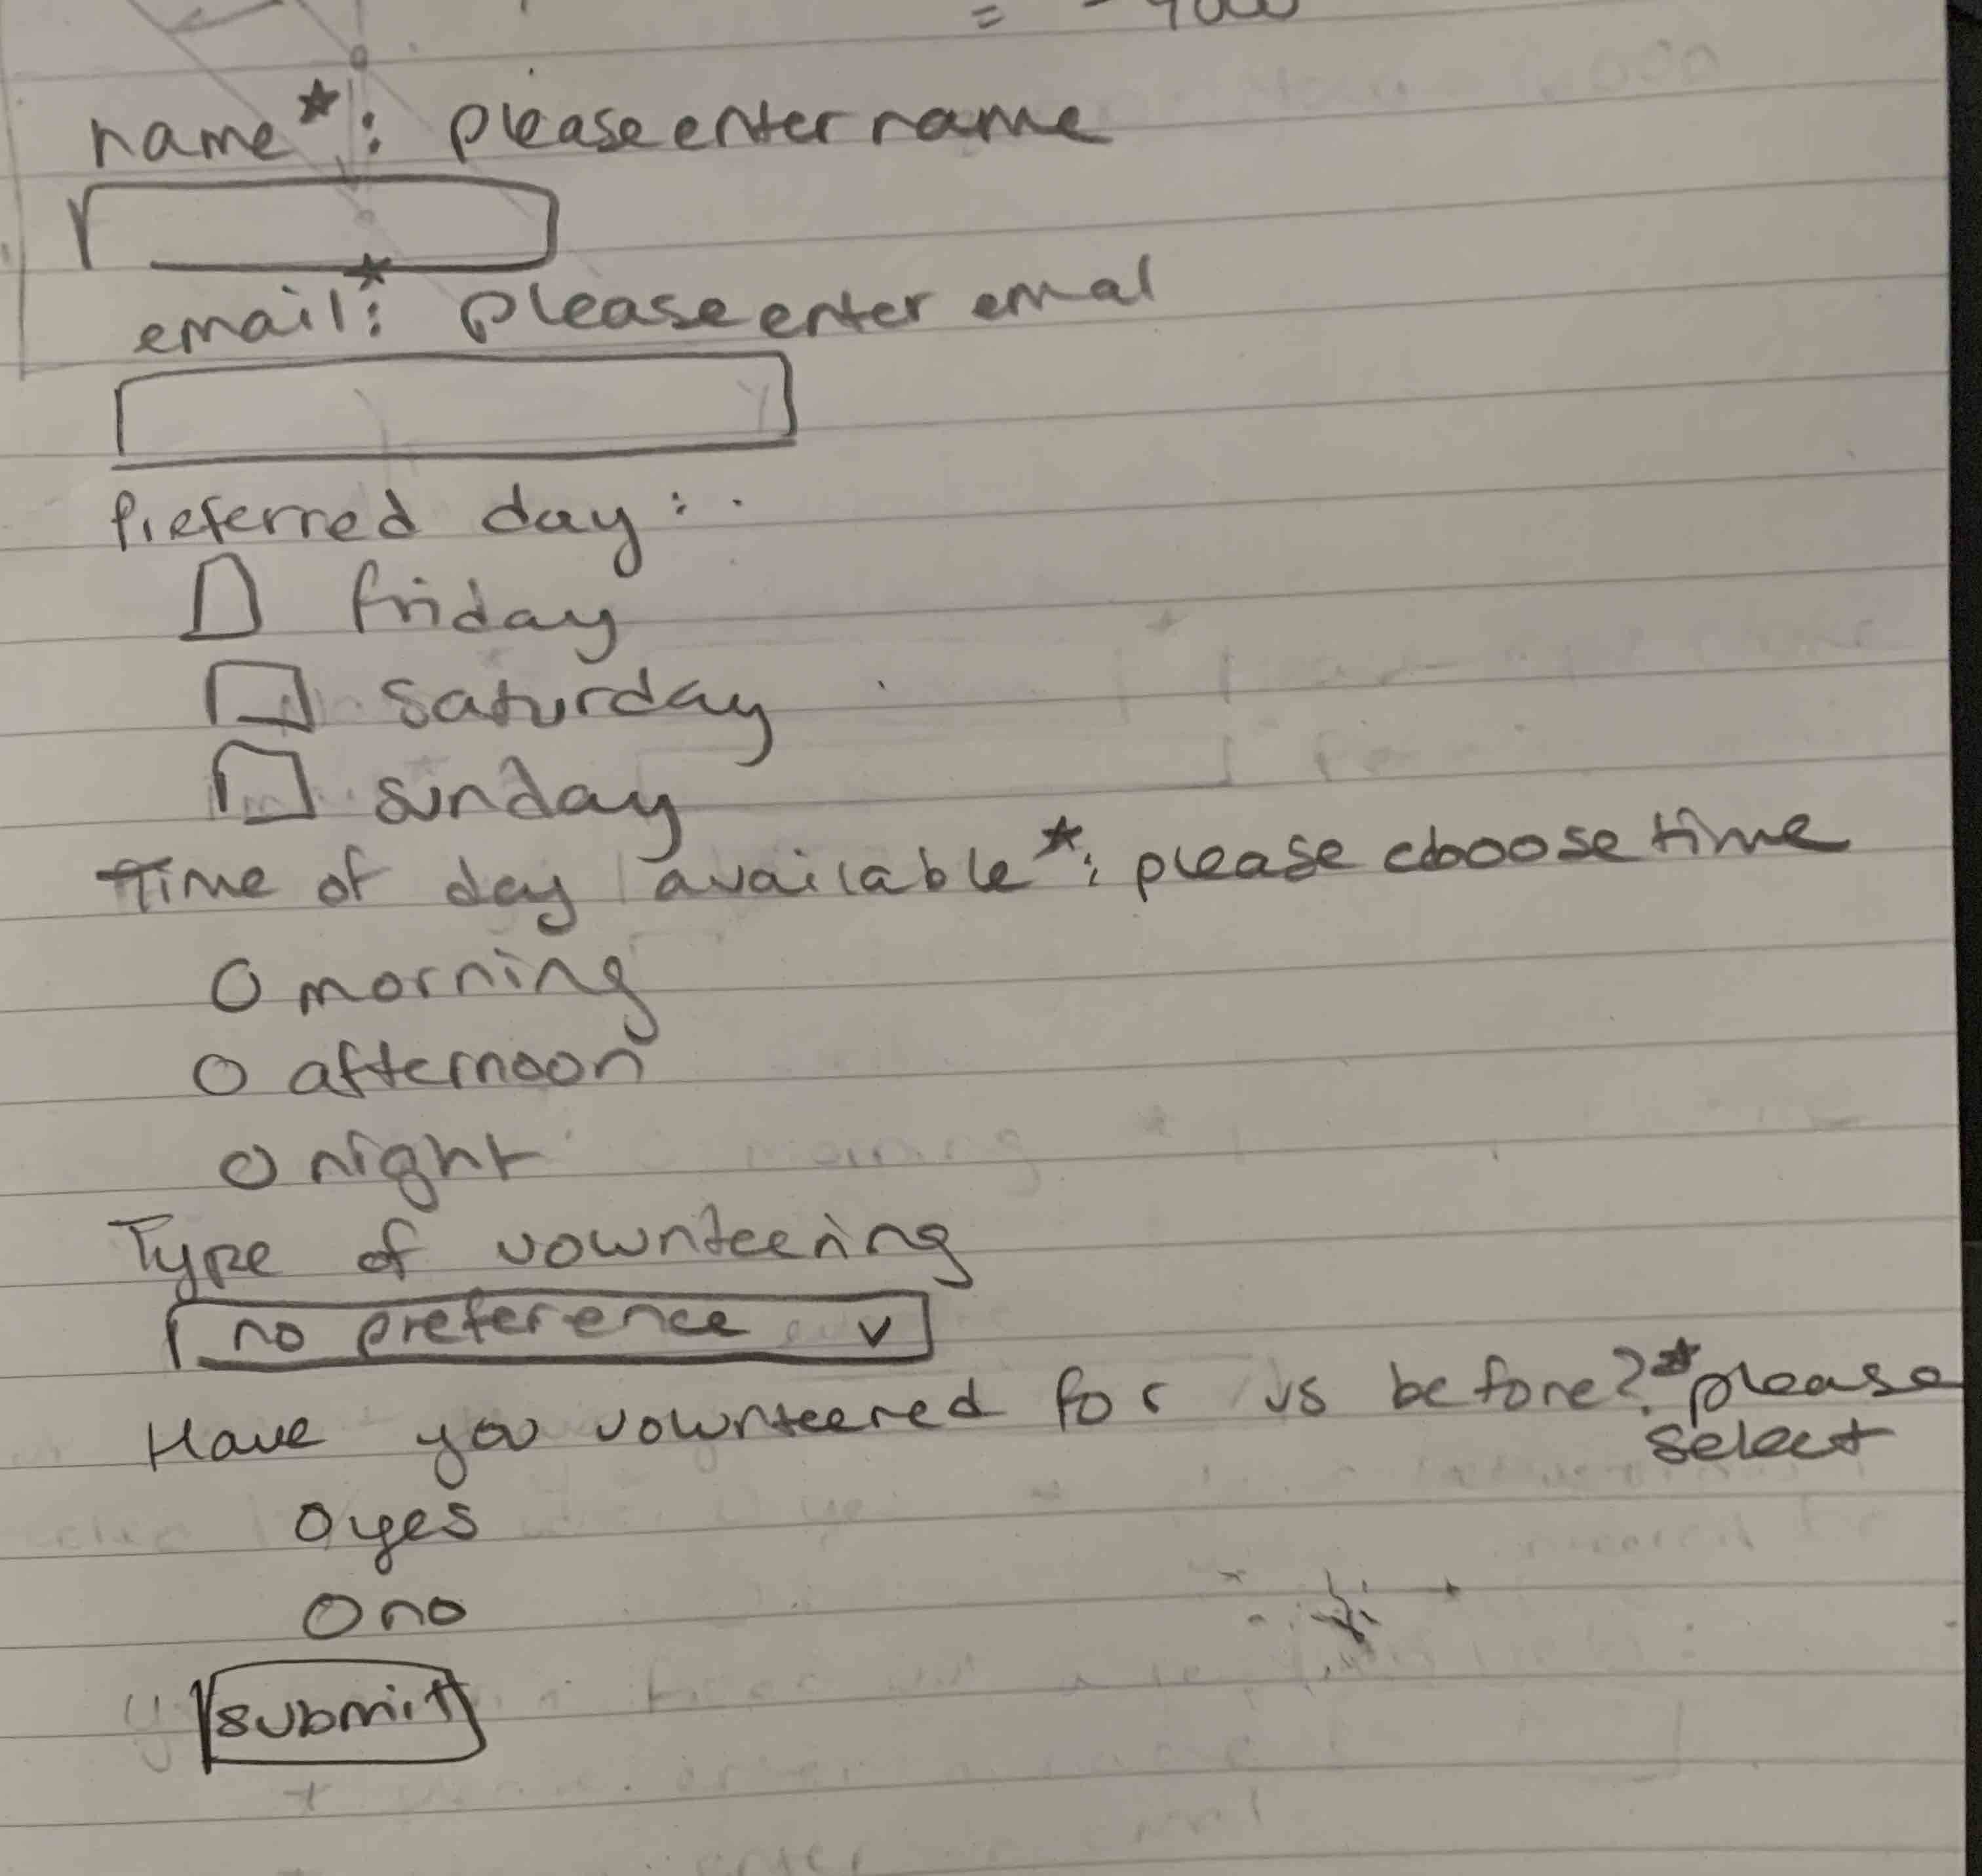 name*: please enter name
email*: please enter emal
Preferred day:
friday
saturday
sunday
Time of day available*: please choose time
O morning
O afternoon
O night
Type of volunteering
no preference v
Have you volunteered for us before?* please
select
O yes
O no
submit